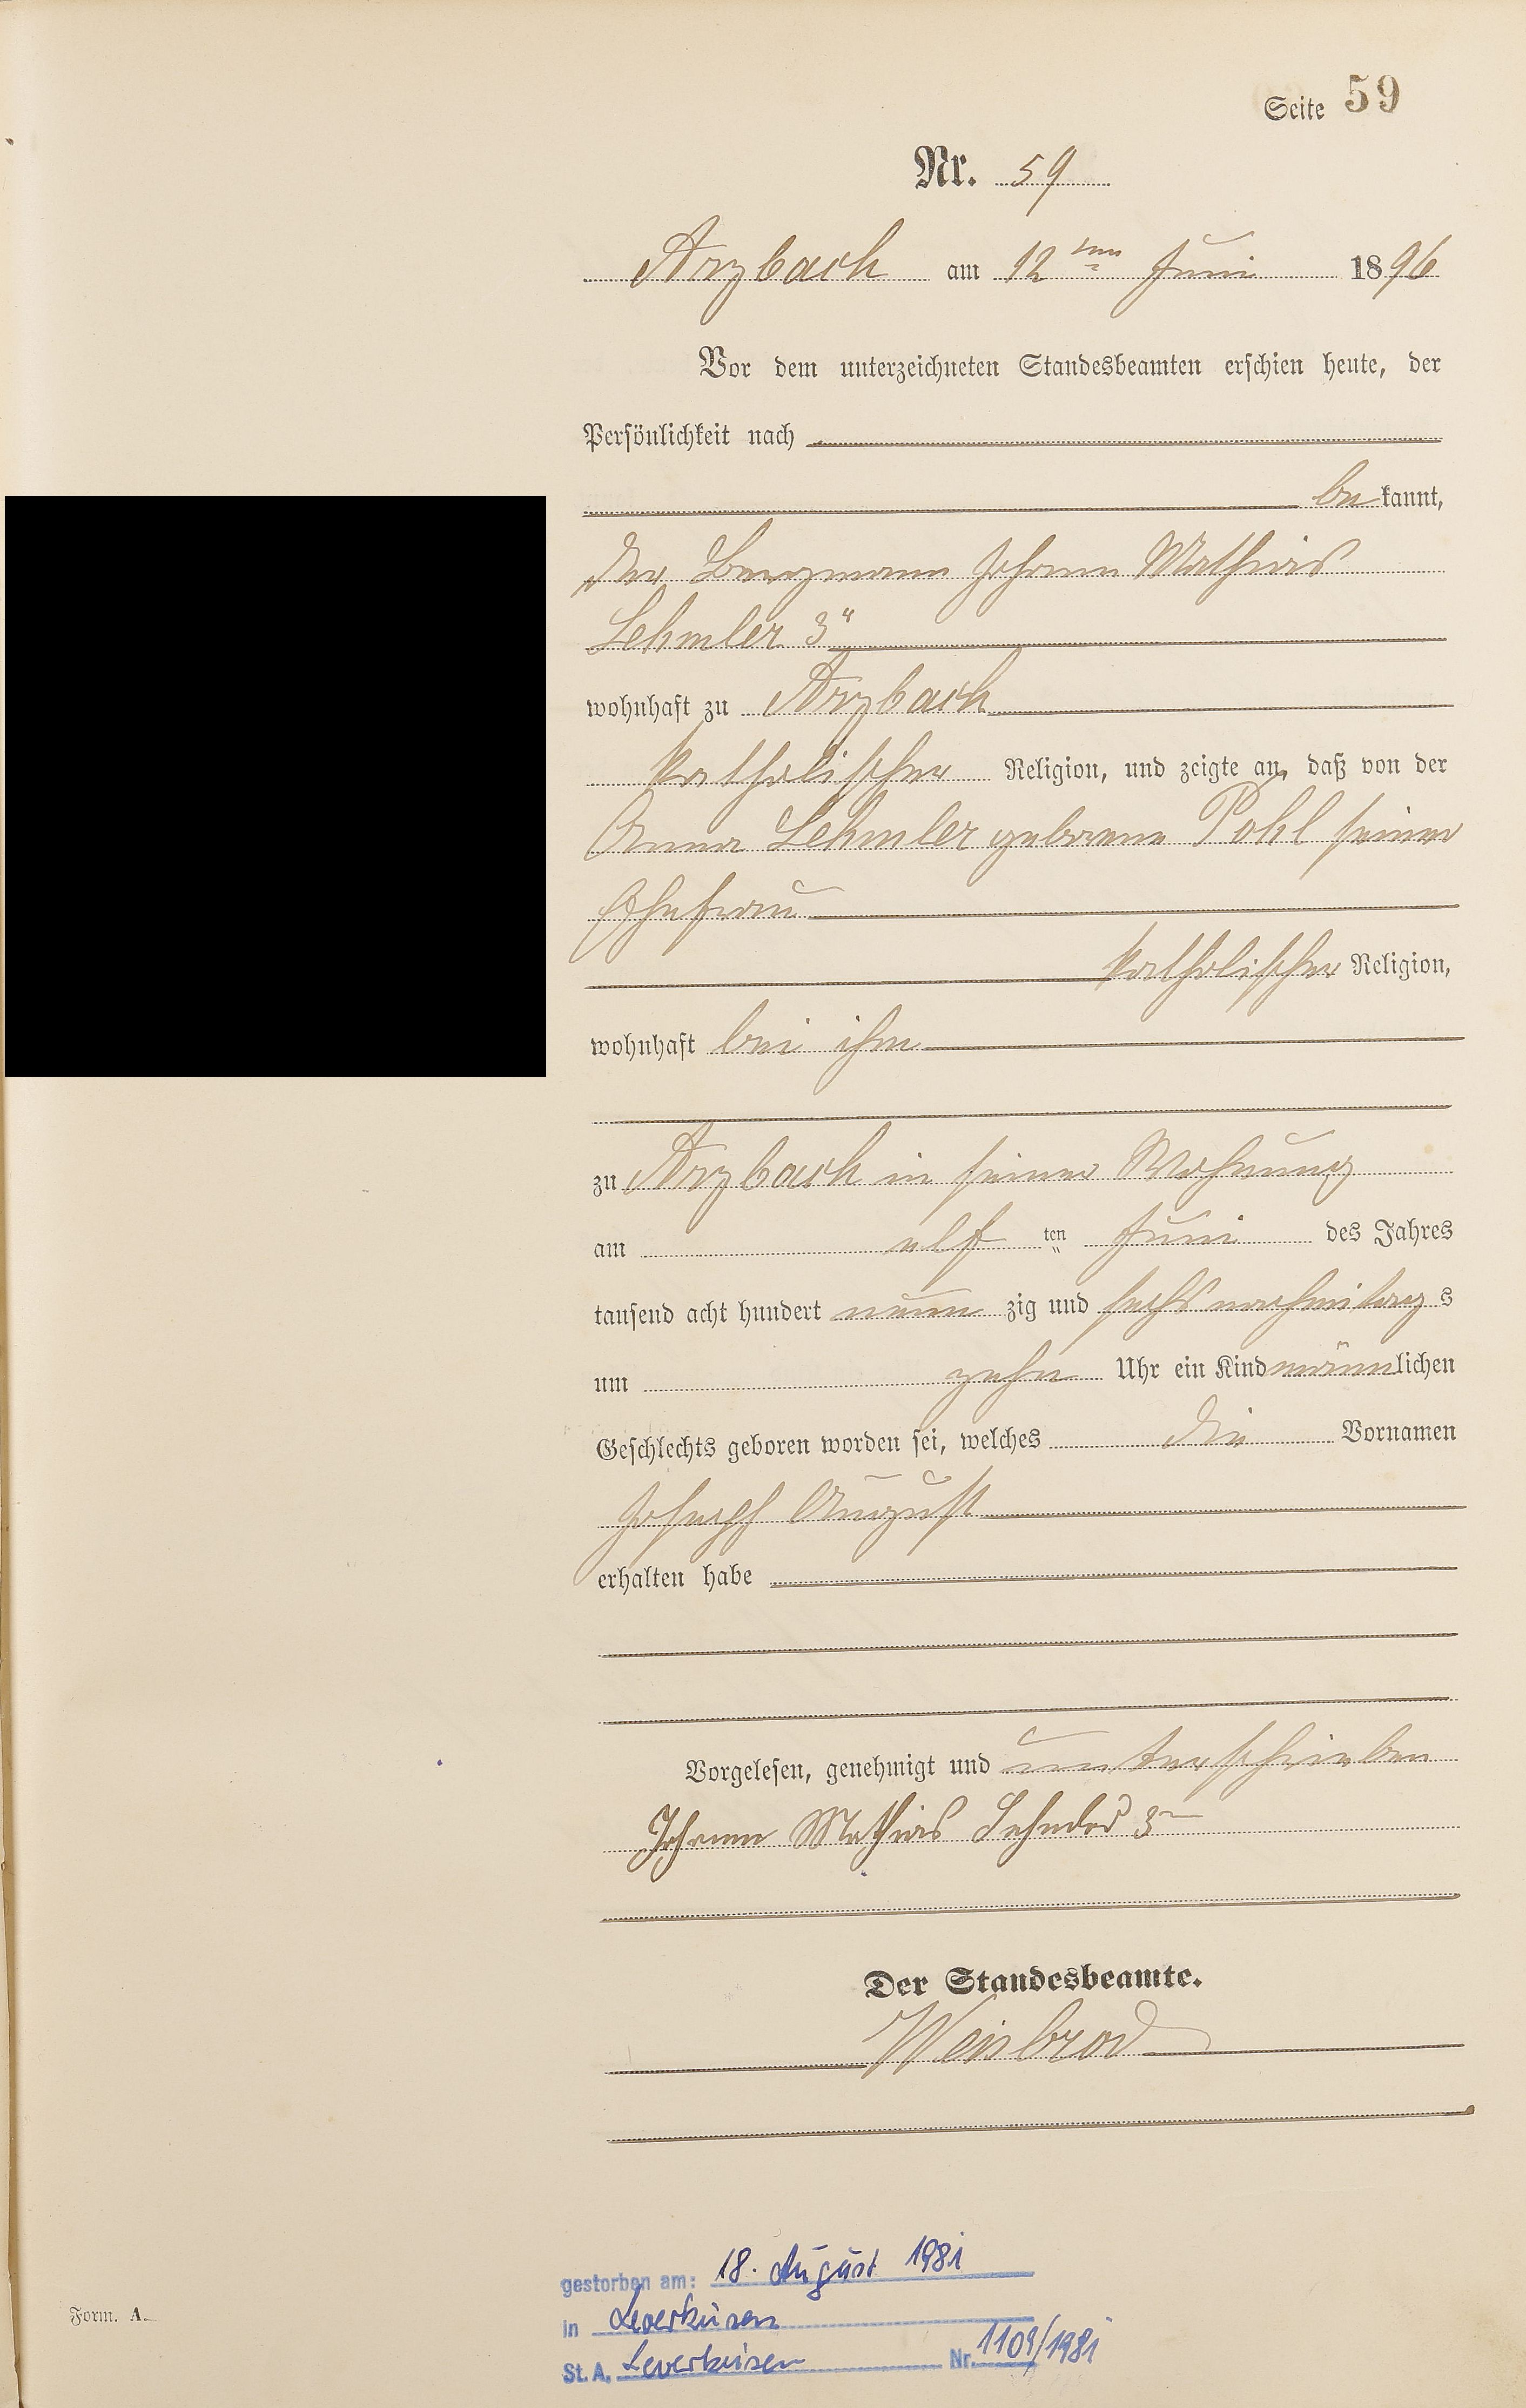 Seite 59
Nr. 59
Arzbach am 12ten Juni 1896
Vor dem unterzeichneten Standesbeamten erschien heute, der
Persönlichkeit nach
bekannt,
der Bergmann Johann Mathias
Lehmler 3"
wohnhaft zu Arzbach
katholischer Religion, und zeigte an, daß von der
Anna Lehmler geborene Pohl seiner
Ehefrau
katholischer Religion,
wohnhaft bei ihm
zu Arzbach in seiner Wohnung
am elf ten Juni des Jahres
tausend acht hundert neun zig und sechs nachmitags
um zehn Uhr ein Kind männlichen
Geschlechts geboren worden sei, welches die Vornamen
Joseph August
erhalten habe
Vorgelesen, genehmigt und unterschrieben
Johann Mathias Lehmler 3
Der Standesbeamte.
Weisbrod
gestorben am: 18. August 1981
in Leverkusen
St. A. Leverkusen Nr. 1109/1981
Form. A.